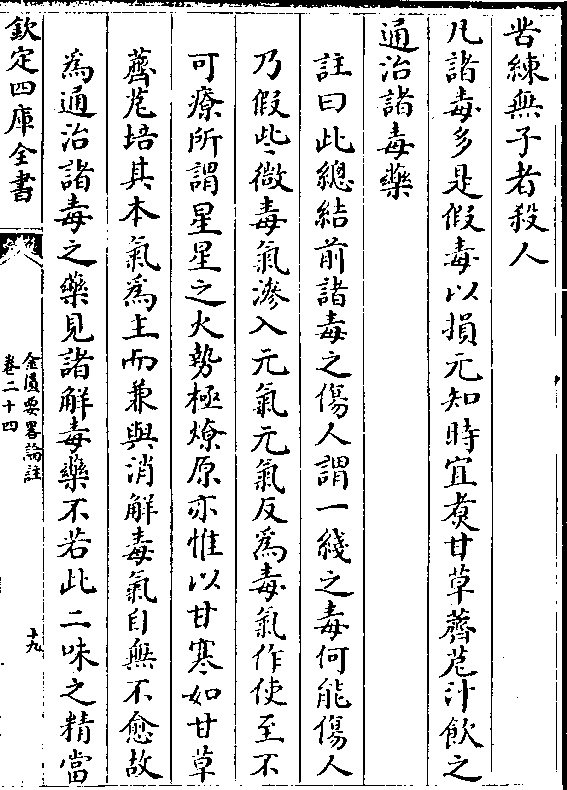 苦練無子者殺人
凡諸毒多是假毒以損元知時宜煑甘草薺苨汁飲之
通治諸毒藥
註曰此總結前諸毒之傷人謂一綫之毒何能傷人
乃假些微毒氣滲入元氣元氣反為毒氣作使至不
可療所謂星星之火勢極燎原亦惟以甘寒如甘草
薺苨培其本氣為主而兼與消解毒氣自無不愈故
為通治諸毒之藥見諸解毒藥不若此二味之精當
欽定四庫全書
金匱要畧論註
卷二十四
十九